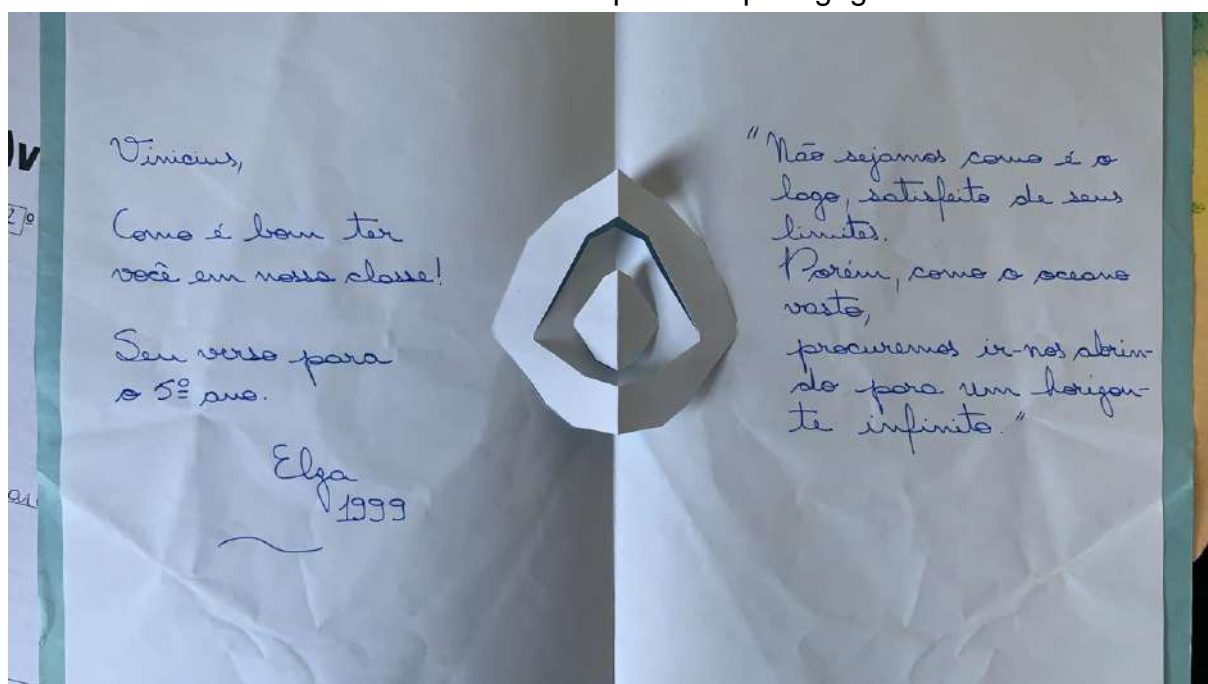 Vinicius,
Como é bom ter
você em nossa classe!
Seu verso para
o 5º ano.
Elga
1999
"Não sejamos como é o
lago, satisfeito de seus
limites.
Porém, como o oceano
vasto,
procuremos ir-nos abrin-
do para um horizon-
te infinito."